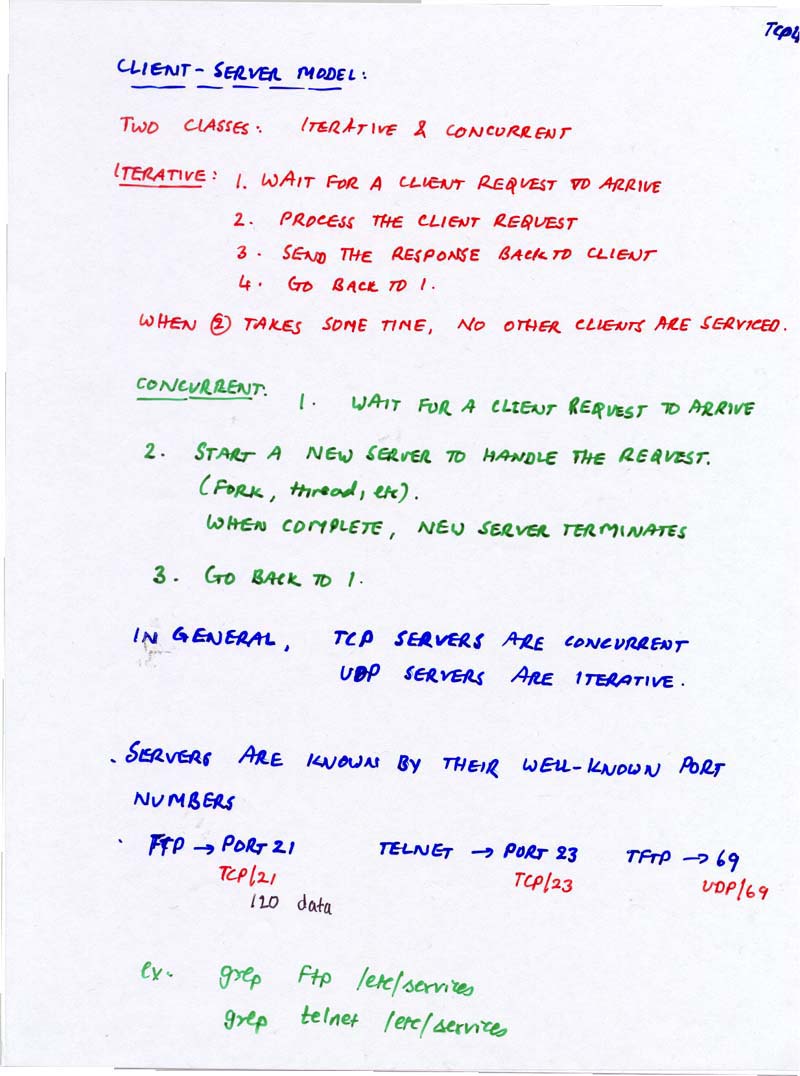 TCP4
CLIENT-SERVER MODEL:
TWO CLASSES: ITERATIVE & CONCURRENT
ITERATIVE: 1. WAIT FOR A CLIENT REQUEST TO ARRIVE
2. PROCESS THE CLIENT REQUEST
3. SEND THE RESPONSE BACK TO CLIENT
4. GO BACK TO 1.
WHEN ② TAKES SOME TIME, NO OTHER CLIENTS ARE SERVICED.
CONCURRENT: 1. WAIT FOR A CLIENT REQUEST TO ARRIVE
2. START A NEW SERVER TO HANDLE THE REQUEST.
(FORK, thread, etc).
WHEN COMPLETE, NEW SERVER TERMINATES
3. GO BACK TO 1.
IN GENERAL, TCP SERVERS ARE CONCURRENT
UDP SERVERS ARE ITERATIVE.
. SERVERS ARE KNOWN BY THEIR WELL-KNOWN PORT
NUMBERS
. FTP → PORT 21 TELNET → PORT 23 TFTP → 69
TCP/21 TCP/23 UDP/69
120 data
ex: grep ftp /etc/services
grep telnet /etc/services